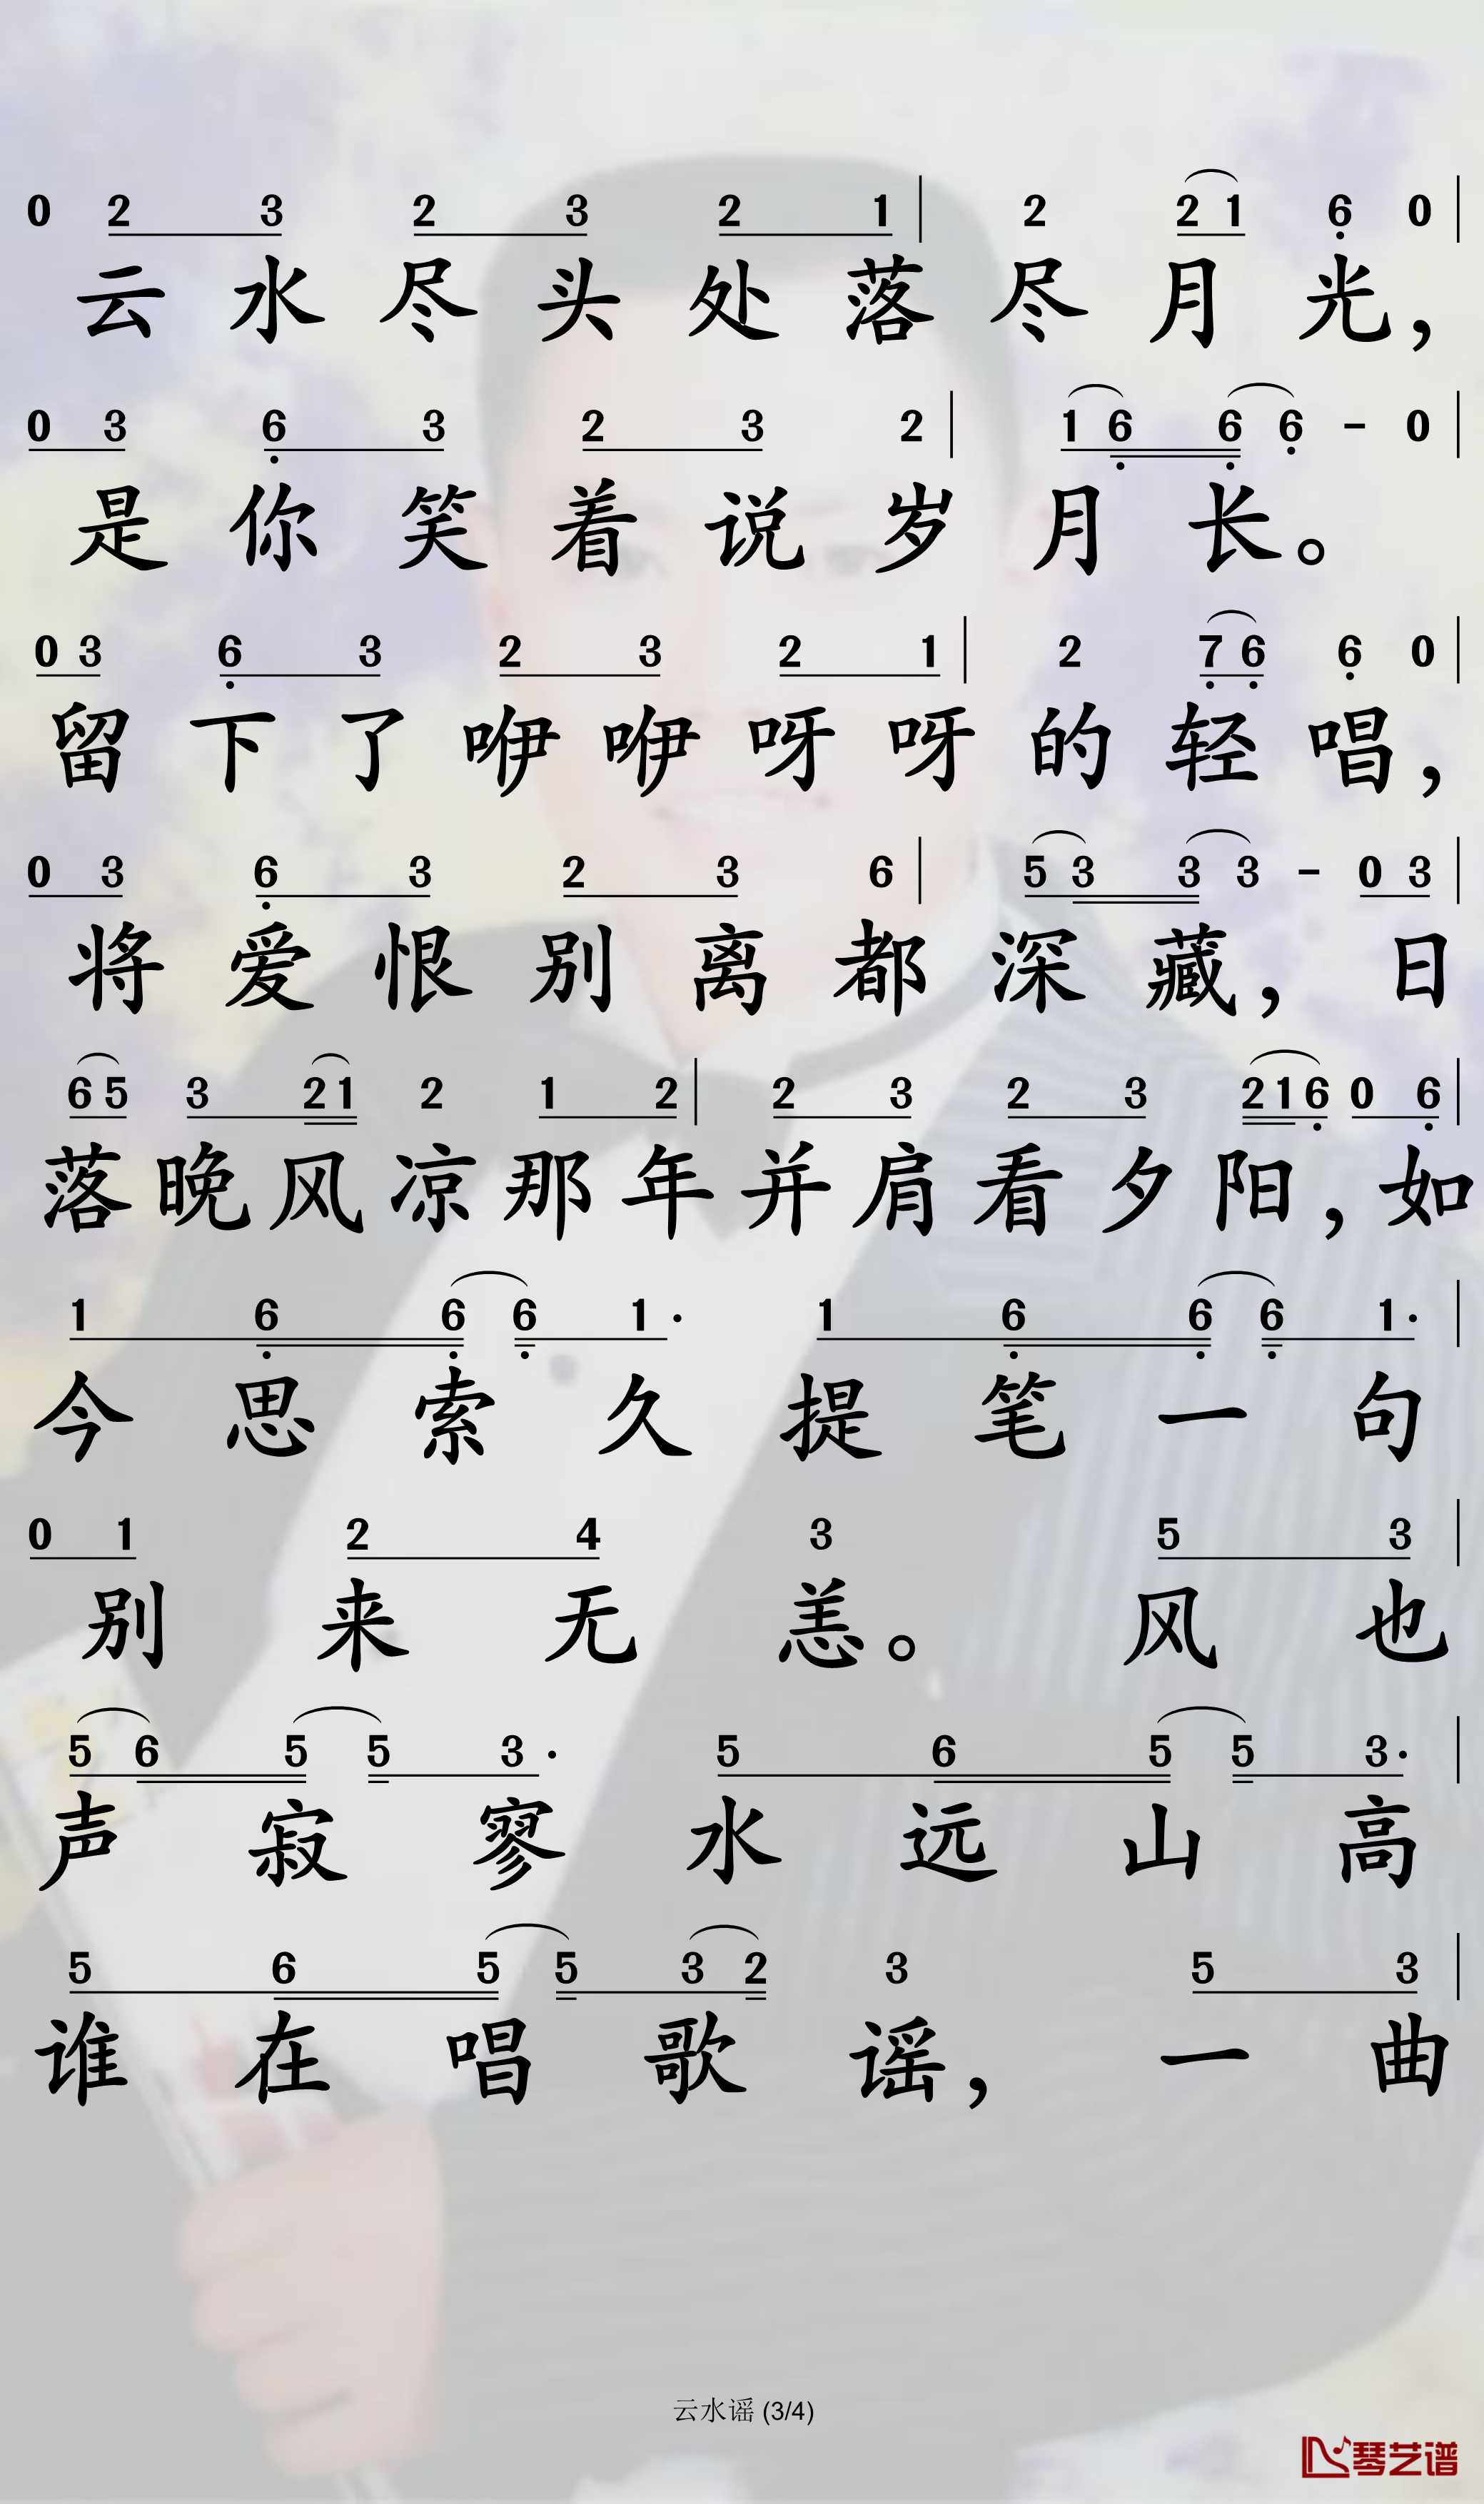 0 2 3 2 3 2 1 | 2 2 1 6 0 |
云水尽头处落尽月光，
0 3 6 3 2 3 2 | 1 6 6 6 - 0 |
是你笑着说岁月长。
0 3 6 3 2 3 2 1 | 2 7 6 6 0 |
留下了咿咿呀呀的轻唱，
0 3 6 3 2 3 6 | 5 3 3 3 - 0 3 |
将爱恨别离都深藏，日
6 5 3 2 1 2 1 2 | 2 3 2 3 2 1 6 0 6 |
落晚风凉那年并肩看夕阳，如
1 6 6 6 1· 1 6 6 6 1· |
今思索久提笔一句
0 1 2 4 3 5 3 |
别来无恙。风也
5 6 5 5 3· 5 6 5 5 3· |
声寂寥水远山高
5 6 5 5 3 2 3 5 3 |
谁在唱歌谣，一曲
云水谣 (3/4)
琴艺谱